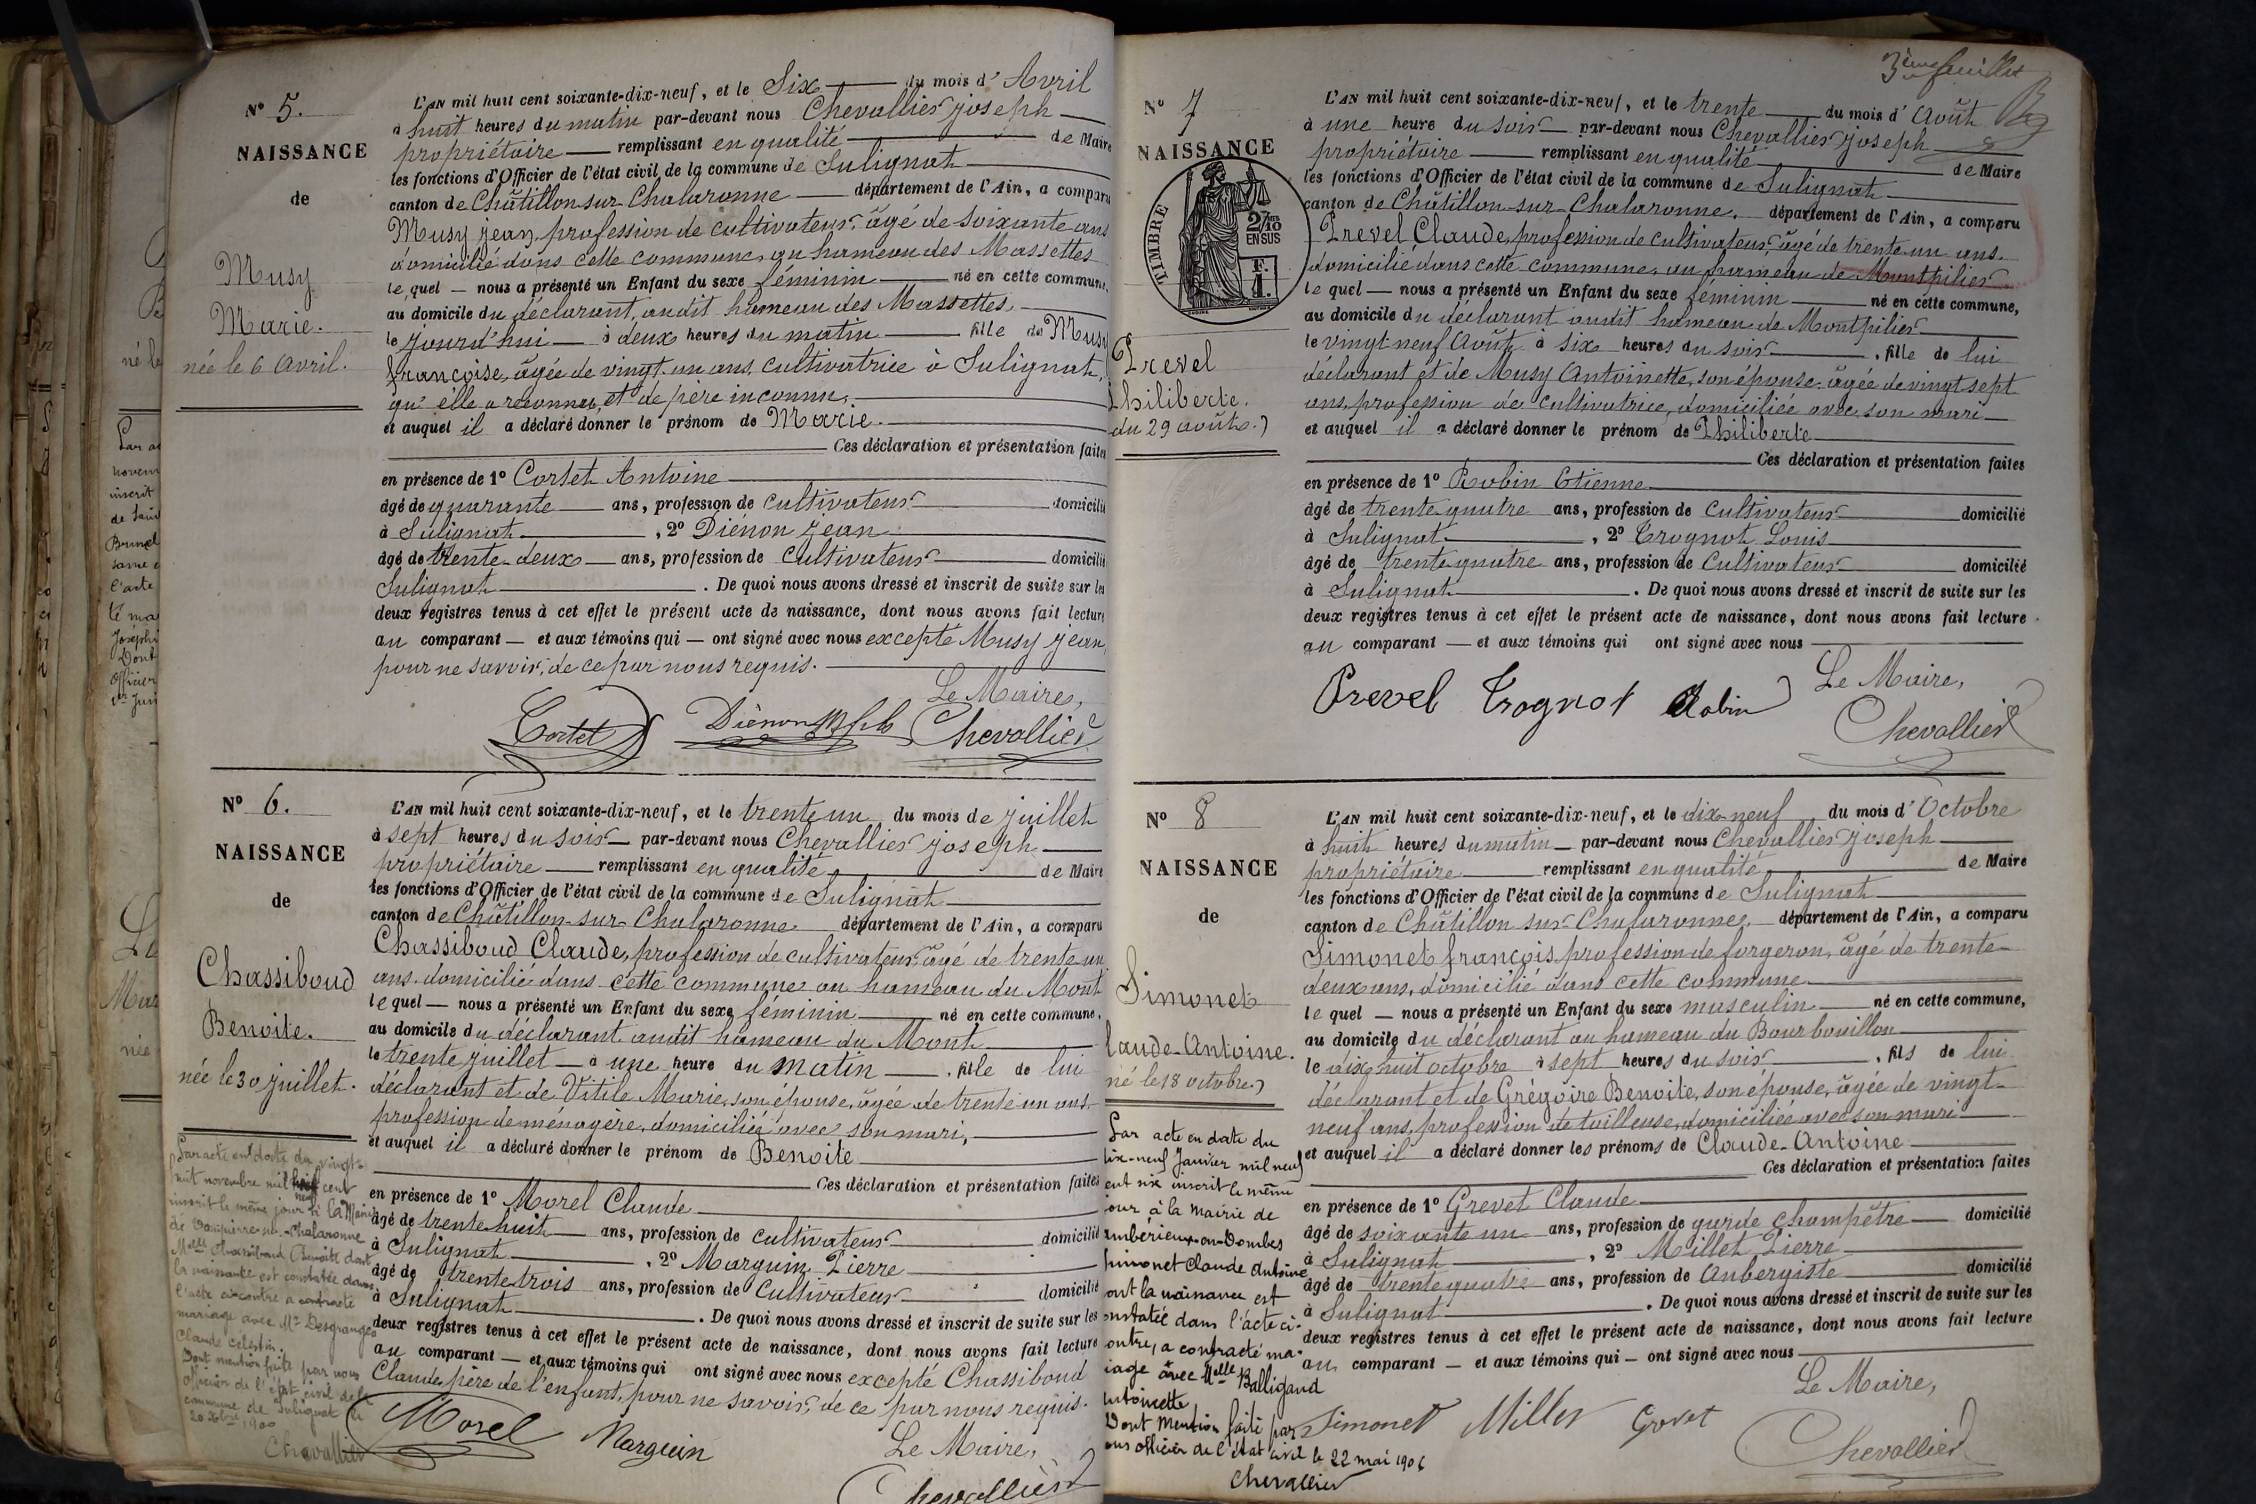 N° 5.
NAISSANCE
de
Musy
Marie.
née le 6 avril.
L'AN mil huit cent soixante-dix-neuf, et le Six du mois d'Avril
à huit heures du matin par-devant nous Chevallier joseph
propriétaire remplissant en qualité de Maire
les fonctions d'Officier de l'état civil de la commune de Sulignat
canton de Châtillon-sur-Chalaronne département de l'Ain, a comparu
Musy jean, profession de cultivateur, âgé de soixante ans
domicilié dans cette commune, au hameau des Massettes
lequel — nous a présenté un Enfant du sexe féminin né en cette commune,
au domicile du déclarant, audit hameau des Massettes
le jourd'hui à deux heures du matin fille de Musy
françoise, âgée de vingt-un ans, cultivatrice à Sulignat,
qu'elle a reconnue, et de père inconnu,
et auquel il a déclaré donner le prénom de Marie.
Ces déclaration et présentation faites
en présence de 1° Cortet Antoine
âgé de quarante ans, profession de cultivateur domicilié
à Sulignat, 2° Diénon jean
âgé de trente-deux ans, profession de cultivateur domicilié
Sulignat. De quoi nous avons dressé et inscrit de suite sur les
deux registres tenus à cet effet le présent acte de naissance, dont nous avons fait lecture
au comparant — et aux témoins qui — ont signé avec nous excepté Musy jean,
pour ne savoir, de ce par nous requis.
Le Maire,
Cortet Diénon Chevallier
N° 6.
NAISSANCE
de
Chassiboud
Benoite.
née le 30 juillet.
L'AN mil huit cent soixante-dix-neuf, et le trente un du mois de juillet
à sept heures du soir par-devant nous Chevallier joseph
propriétaire remplissant en qualité de Maire
les fonctions d'Officier de l'état civil de la commune de Sulignat
canton de Châtillon-sur-Chalaronne département de l'Ain, a comparu
Chassiboud Claude, profession de cultivateur, âgé de trente un
ans, domicilié dans cette commune au hameau du Mont
lequel — nous a présenté un Enfant du sexe féminin né en cette commune,
au domicile du déclarant audit hameau du Mont
le trente juillet à une heure du matin, fille de lui
déclarant et de Vitile Marie, son épouse, âgée de trente un ans,
profession de ménagère, domiciliée avec son mari,
et auquel il a déclaré donner le prénom de Benoite
Ces déclaration et présentation faites
en présence de 1° Morel Claude
âgé de trente huit ans, profession de cultivateur domicilié
à Sulignat, 2° Marguin Pierre
âgé de trente trois ans, profession de Cultivateur domicilié
à Sulignat. De quoi nous avons dressé et inscrit de suite sur les
deux registres tenus à cet effet le présent acte de naissance, dont nous avons fait lecture
au comparant — et aux témoins qui ont signé avec nous excepté Chassiboud
Claude, père de l'enfant, pour ne savoir, de ce par nous requis.
Morel Marguin Le Maire,
Chevallier
Par acte en date du vingt-
huit novembre mil neuf cent
inscrit le même jour à la Mairie
de Dompierre-sur-Chalaronne
Melle Chassiboud Benoite dont
la naissance est constatée dans
l'acte ci-contre a contracté
mariage avec Mr Desgranges
Claude Célestin.
Dont mention faite par nous
officier de l'état civil de la
commune de Sulignat le
1900
Chevallier
3ème feuillet
N° 7
NAISSANCE
TIMBRE
2/10 EN SUS
F. 1.
Prevel
Philiberte.
du 29 août.
L'AN mil huit cent soixante-dix-neuf, et le trente du mois d'Août
à une heure du soir par-devant nous Chevallier joseph
propriétaire remplissant en qualité de Maire
les fonctions d'Officier de l'état civil de la commune de Sulignat
canton de Châtillon-sur-Chalaronne, département de l'Ain, a comparu
Prevel Claude, profession de cultivateur, âgé de trente-un ans,
domicilié dans cette commune, au hameau de Montpilier
lequel — nous a présenté un Enfant du sexe féminin né en cette commune,
au domicile du déclarant audit hameau de Montpilier
le vingt-neuf Août à six heures du soir, fille de lui
déclarant et de Musy Antoinette, son épouse, âgée de vingt sept
ans, profession de cultivatrice, domiciliée avec son mari
et auquel il a déclaré donner le prénom de Philiberte
Ces déclaration et présentation faites
en présence de 1° Robin Etienne
âgé de trente quatre ans, profession de cultivateur domicilié
à Sulignat, 2° Trognot Louis
âgé de trente quatre ans, profession de Cultivateur domicilié
à Sulignat. De quoi nous avons dressé et inscrit de suite sur les
deux registres tenus à cet effet le présent acte de naissance, dont nous avons fait lecture
au comparant — et aux témoins qui ont signé avec nous
Le Maire,
Prevel Trognot Robin Chevallier
N° 8
NAISSANCE
de
Simonet
laude-Antoine.
né le 18 octobre.
L'AN mil huit cent soixante-dix-neuf, et le dix-neuf du mois d'Octobre
à huit heures du matin par-devant nous Chevallier joseph
propriétaire remplissant en qualité de Maire
les fonctions d'Officier de l'état civil de la commune de Sulignat
canton de Châtillon-sur-Chalaronne, département de l'Ain, a comparu
Simonet françois, profession de forgeron, âgé de trente-
deux ans, domicilié dans cette commune
lequel — nous a présenté un Enfant du sexe masculin né en cette commune,
au domicile du déclarant au hameau du Bourbouillon
le dix huit octobre à sept heures du soir, fils de lui
déclarant et de Grégoire Benoite, son épouse, âgée de vingt-
neuf ans, profession de tailleuse, domiciliée avec son mari
et auquel il a déclaré donner les prénoms de Claude-Antoine
Ces déclaration et présentation faites
en présence de 1° Grevet Claude
âgé de soixante un ans, profession de garde champêtre domicilié
à Sulignat, 2° Millet Pierre
âgé de trente quatre ans, profession de Aubergiste domicilié
à Sulignat. De quoi nous avons dressé et inscrit de suite sur les
deux registres tenus à cet effet le présent acte de naissance, dont nous avons fait lecture
au comparant — et aux témoins qui — ont signé avec nous
Le Maire,
Simonet Millet Chevallier
Par acte en date du
dix-neuf Janvier mil neuf
cent six inscrit le même
jour à la mairie de
Ambérieux-en-Dombes
Simonet Claude Antoine
dont la naissance est
constatée dans l'acte ci-
contre, a contracté ma-
riage avec Melle Balligand
Antoinette
Dont Mention faite par
nous officier de l'état civil le 22 mai 1906
Chevallier